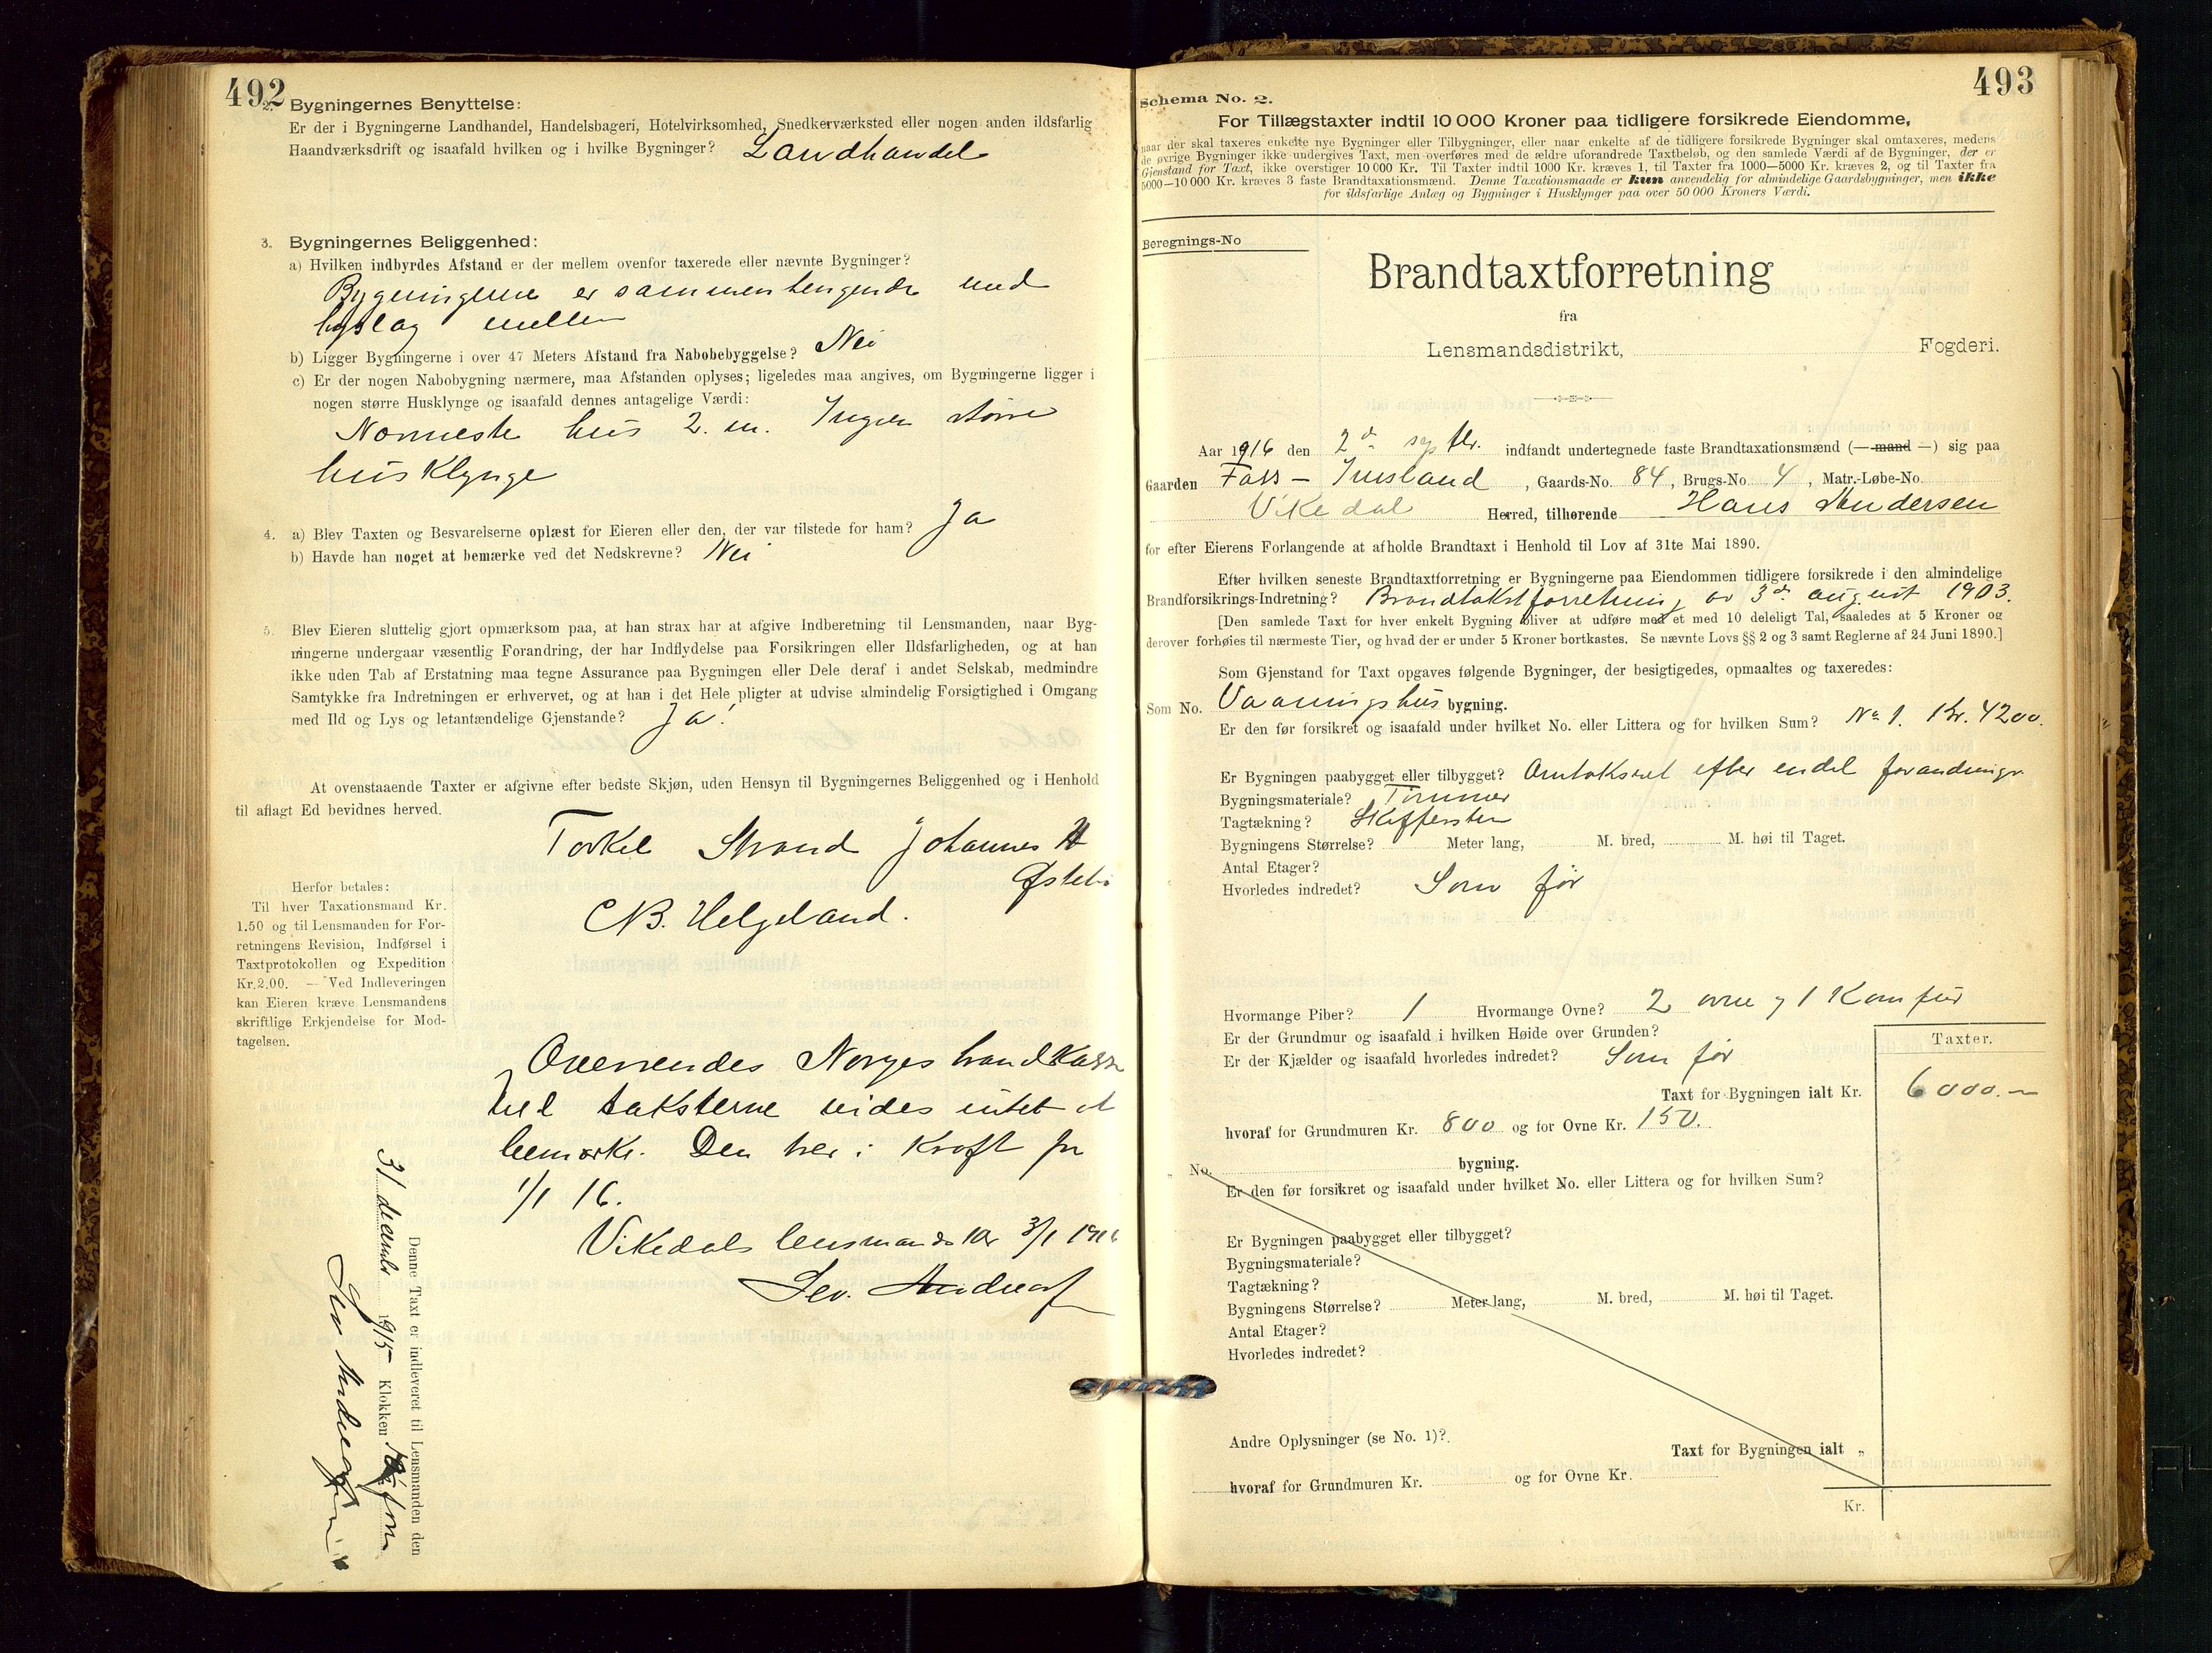 492
2. Bygningernes Benyttelse:
Er der i Bygningerne Landhandel, Handelsbageri, Hotelvirksomhed, Snedkerværksted eller nogen anden ildsfarlig
Haandværksdrift og isaafald hvilken og i hvilke Bygninger? Landhandel
3. Bygningernes Beliggenhed:
a) Hvilken indbyrdes Afstand er der mellem ovenfor taxerede eller nævnte Bygninger?
Bygningerne er sammenhengende med
bislag mellem
b) Ligger Bygningerne i over 47 Meters Afstand fra Nabobebyggelse? Nei
c) Er der nogen Nabobygning nærmere, maa Afstanden oplyses; ligeledes maa angives, om Bygningerne ligger i
nogen større Husklynge og isaafald dennes antagelige Værdi:
Nærmeste hus 2. m. Ingen større
husklynge
4. a) Blev Taxten og Besvarelserne oplæst for Eieren eller den, der var tilstede for ham? Ja
b) Havde han noget at bemærke ved det Nedskrevne? Nei
5. Blev Eieren sluttelig gjort opmærksom paa, at han strax har at afgive Indberetning til Lensmanden, naar Byg-
ningerne undergaar væsentlig Forandring, der har Indflydelse paa Forsikringen eller Ildsfarligheden, og at han
ikke uden Tab af Erstatning maa tegne Assurance paa Bygningen eller Dele deraf i andet Selskab, medmindre
Samtykke fra Indretningen er erhvervet, og at han i det Hele pligter at udvise almindelig Forsigtighed i Omgang
med Ild og Lys og letantændelige Gjenstande? Ja!
At ovenstaaende Taxter er afgivne efter bedste Skjøn, uden Hensyn til Bygningernes Beliggenhed og i Henhold
til aflagt Ed bevidnes herved.
Torkel Strand Johannes H
Østebø
C B. Helgeland.
Herfor betales:
Til hver Taxationsmand Kr.
1.50 og til Lensmanden for For-
retningens Revision, Indførsel i
Taxtprotokollen og Expedition
Kr. 2.00. — Ved Indleveringen
kan Eieren kræve Lensmandens
skriftlige Erkjendelse for Mod-
tagelsen.
Oversendes Norges brandkasse
Ved taksterne vides intet at
bemærke. Den træ i Kraft fra
1/1 16.
Vikedals lensmandsktr 3/1 1916
Sev. Andreas
Denne Taxt er indleveret til Lensmanden den
31 decembr 1915 Klokken form
493
Schema No. 2.
For Tillægstaxter indtil 10 000 Kroner paa tidligere forsikrede Eiendomme,
naar der skal taxeres enkelte nye Bygninger eller Tilbygninger, eller naar enkelte af de tidligere forsikrede Bygninger skal omtaxeres, medens
de øvrige Bygninger ikke undergives Taxt, men overføres med de ældre uforandrede Taxtbeløb, og den samlede Værdi af de Bygninger, der er
Gjenstand for Taxt, ikke overstiger 10 000 Kr. Til Taxter indtil 1000 Kr. kræves 1, til Taxter fra 1000—5000 Kr. kræves 2, og til Taxter fra
5000—10 000 Kr. kræves 3 faste Brandtaxationsmænd. Denne Taxationsmaade er kun anvendelig for almindelige Gaardsbygninger, men ikke
for ildsfarlige Anlæg og Bygninger i Husklynger paa over 50 000 Kroners Værdi.
Beregnings-No
Brandtaxtforretning
fra
Lensmandsdistrikt, Fogderi.
Aar 1916 den 2de septbr. indfandt undertegnede faste Brandtaxationsmænd (— mand —) sig paa
Gaarden Foss - Imsland , Gaards-No. 84, Brugs-No. 4, Matr.-Løbe-No.
Vikedal Herred, tilhørende Hans Andersen
for efter Eierens Forlangende at afholde Brandtaxt i Henhold til Lov af 31te Mai 1890.
Efter hvilken seneste Brandtaxtforretning er Bygningerne paa Eiendommen tidligere forsikrede i den almindelige
Brandforsikrings-Indretning? Brandtakstforretning av 3de august 1903.
[Den samlede Taxt for hver enkelt Bygning bliver at udføre med et med 10 deleligt Tal, saaledes at 5 Kroner og
derover forhøies til nærmeste Tier, og hvad der er under 5 Kroner bortkastes. Se nævnte Lovs §§ 2 og 3 samt Reglerne af 24 Juni 1890.]
Som Gjenstand for Taxt opgaves følgende Bygninger, der besigtigedes, opmaaltes og taxeredes:
Som No. Vaaningshus bygning.
Er den før forsikret og isaafald under hvilket No. eller Littera og for hvilken Sum? No 1. Kr. 4200.
Er Bygningen paabygget eller tilbygget? Omtakseret efter endel forandringer
Bygningsmateriale? Tømmer
Tagtækning? Skiffersten
Bygningens Størrelse? Meter lang, M. bred, M. høi til Taget.
Antal Etager?
Hvorledes indredet? Som før
Hvormange Piber? 1 Hvormange Ovne? 2 ovne og 1 Komfur
Er der Grundmur og isaafald i hvilken Høide over Grunden?
Er der Kjælder og isaafald hvorledes indredet? Som før
Taxter.
Taxt for Bygningen ialt Kr. 6000.-
hvoraf for Grundmuren Kr. 800 og for Ovne Kr. 150.
No. bygning.
Er den før forsikret og isaafald under hvilket No. eller Littera og for hvilken Sum?
Er Bygningen paabygget eller tilbygget?
Bygningsmateriale?
Tagtækning?
Bygningens Størrelse? Meter lang, M. bred, M. høi til Taget.
Antal Etager?
Hvorledes indredet?
Andre Oplysninger (se No. 1)?
Taxt for Bygningen ialt „
hvoraf for Grundmuren Kr. og for Ovne Kr.
Kr.